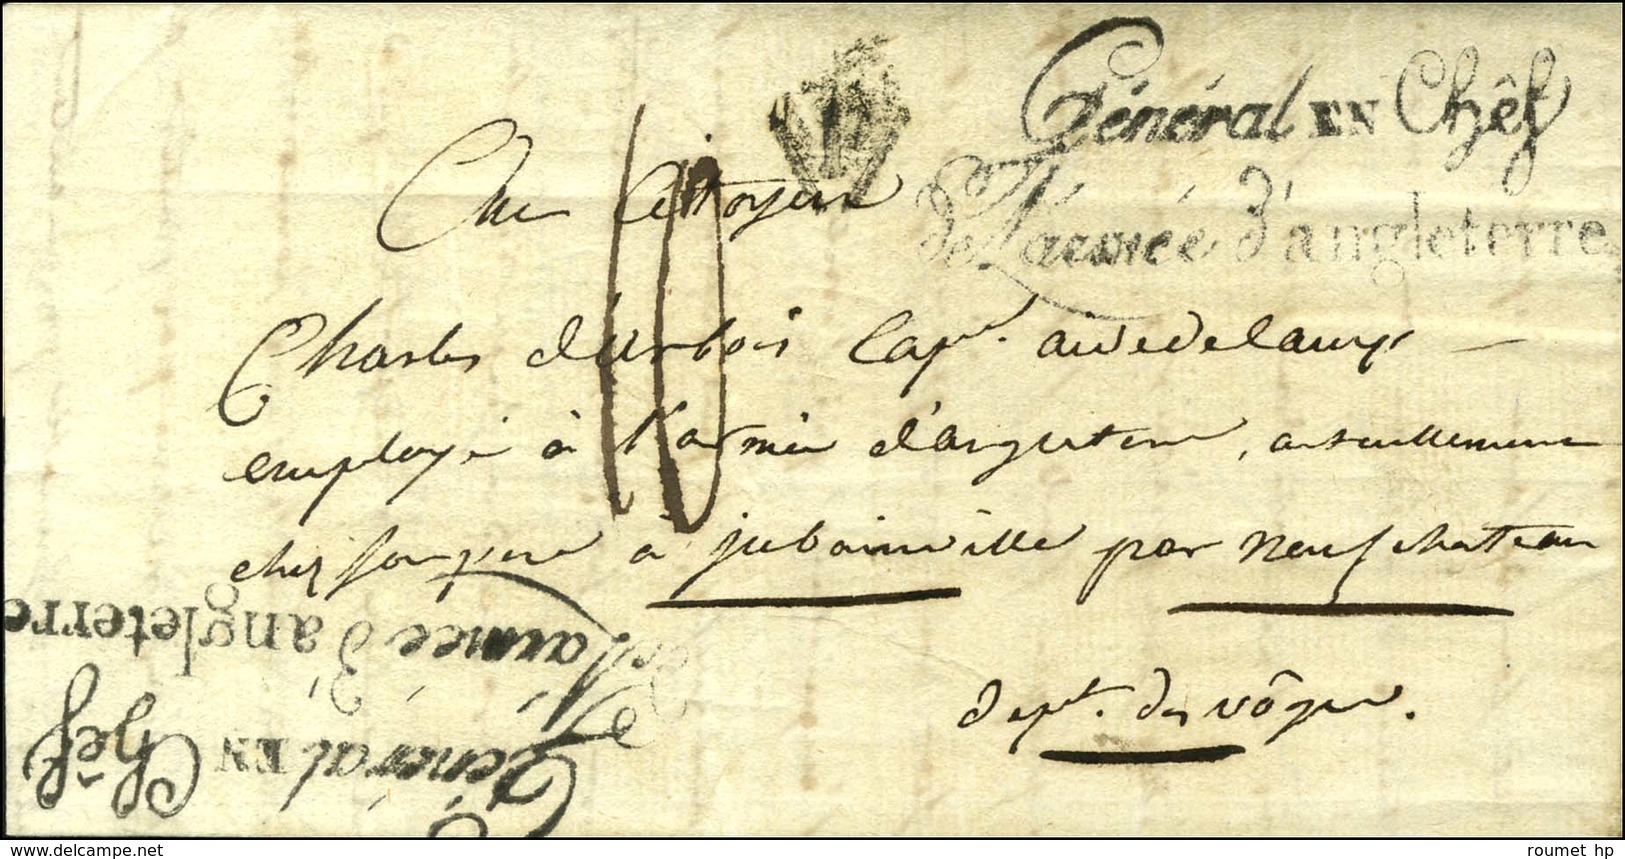 P
Général EN Chêf
de L'armée d'angleterre
Au Citoyen
10
Charles durbois Cap.ne aidedecamp
employé à l'armée d'angleterre, actuellement
chez son pere à jubainville par neufchateau
dept. des vôges.
de L'armée d'angleterre
Général EN Chêf
www.delcampe.net
roumet hp